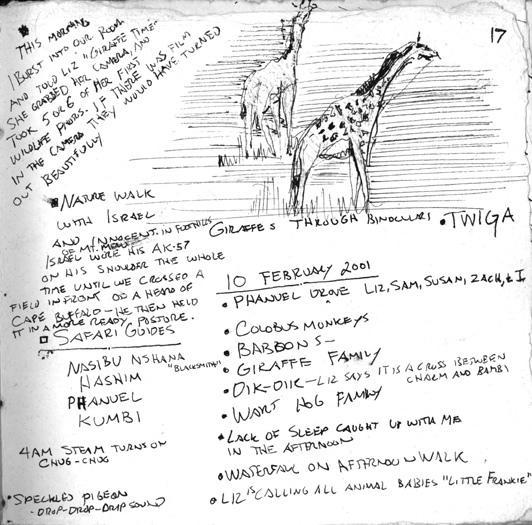 17
THIS MORNING
I BURST INTO OUR ROOM
AND TOLD LIZ "GIRAFFE TIME"
SHE GRABBED HER CAMERA, AND
TOOK 5 OR 6 OF HER FIRST
WILDLIFE PHOTOS. IF THERE WAS FILM
IN THE CAMERA THEY WOULD HAVE TURNED
OUT BEAUTIFULLY
NATURE WALK
WITH ISRAEL
AND INNOCENT. IN FOOTHILLS
OF MT. MERU
ISRAEL WORE HIS AK-57
ON HIS SHOULDER THE WHOLE
TIME UNTIL WE CROSSED A
FIELD IN FRONT OD A HEARD OF
CAPE BUFFALO - HE THEN HELD
IT IN A MORE READY POSTURE.
SAFARI GUIDES
NASIBU NSHANA
"BLACKSMITH"
HASHIM
PHANUEL
KUMBI
4AM STEAM TURNS ON
CHUG-CHUG
• SPECKLED PIGEON
-DROP-DROP-DROP SOUND
GIRAFFES THROUGH BINOCULARS • TWIGA
10 FEBRUARY 2001
• PHANUEL DROVE LIZ, SAM, SUSAN, ZACH, & I
• COLOBUS MONKEYS
• BABOONS -
• GIRAFFE FAMILY
• DIK-DIK - LIZ SAYS IT IS A CROSS BETWEEN
AND BAMBI
• WART HOG FAMILY
• LACK OF SLEEP CAUGHT UP WITH ME
IN THE AFTERNOON
• WATERFALL ON AFTERNOON WALK
• LIZ IS CALLING ALL ANIMAL BABIES "LITTLE FRANKIE"